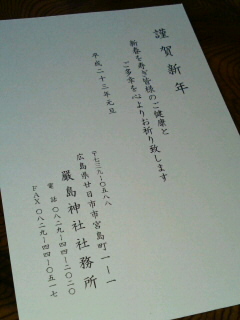 謹賀新年
新春を寿ぎ皆様のご健康と
ご多幸を心よりお祈り致します
平成二十三年元旦
〒七三九-〇五八八
広島県廿日市市宮島町一-一
嚴島神社社務所
電話〇八二九-四四-二〇二〇
FAX〇八二九-四四-〇五一七